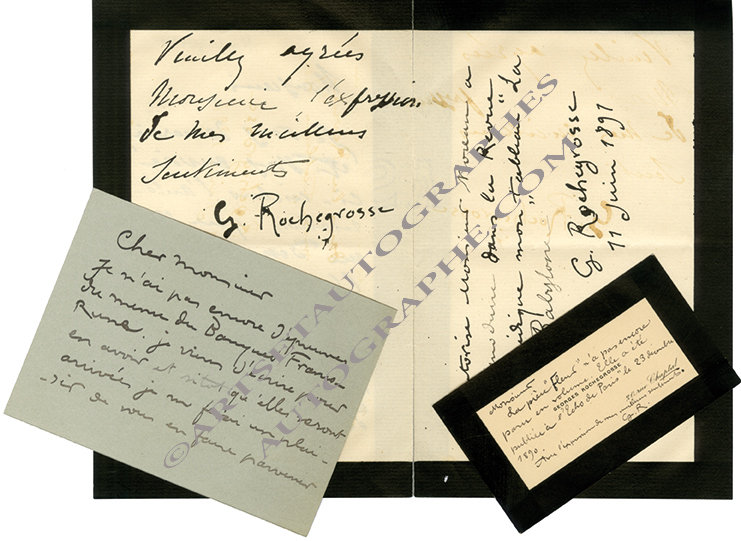 Veuillez agréer
Monsieur l'expression
de mes meilleurs
Sentiments
G. Rochegrosse
autorise Monsieur Moreau a
dans la Revue
mon tableau "La
Babylone"
G. Rochegrosse
11 Juin 1891
Cher monsieur
Je n'ai pas encore d'épreuves
du menu du Banquet Franco
Russe. je viens d'écrire pour
en avoir et sitot qu'elles seront
arrivées je me ferai un plai-
-sir de vous en faire parvenir
Monsieur
La pièce n'a pas encore
paru en volume. Elle a été
GEORGES ROCHEGROSSE
publiée à l'"Echo de Paris" le 23 decembre
1890.
rue Chaptal
Avec l'expression de mes meilleurs sentiments.
G. R.
© ARTSETAUTOGRAPHES
AUTOGRAPHE.COM